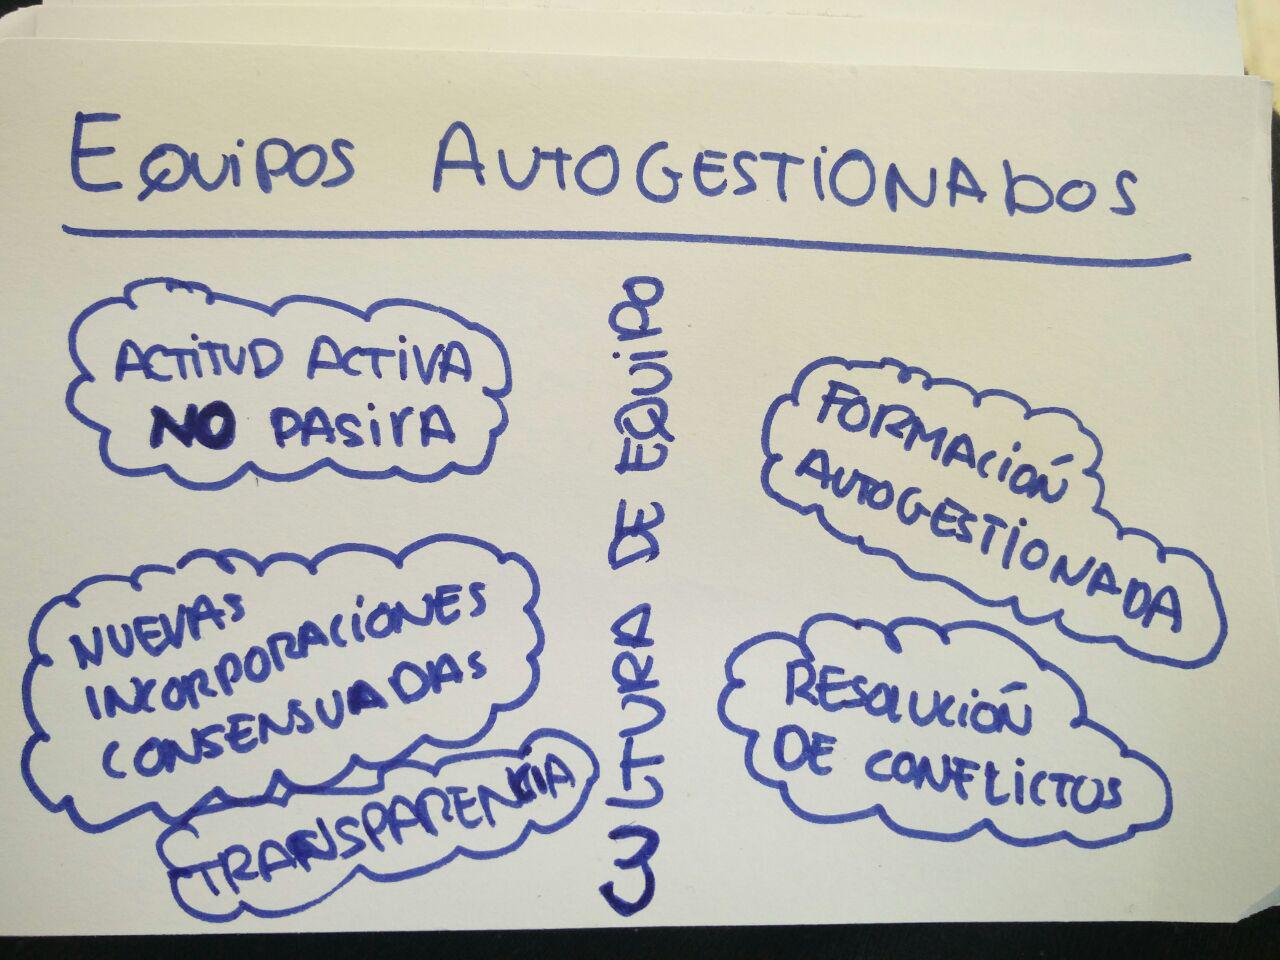 EQUIPOS AUTOGESTIONADOS
ACTITUD ACTIVA
NO PASIVA
NUEVAS
INCORPORACIONES
CONSENSUADAS
TRANSPARENCIA
CULTURA DE EQUIPO
FORMACIÓN
AUTOGESTIONADA
RESOLUCIÓN
DE CONFLICTOS